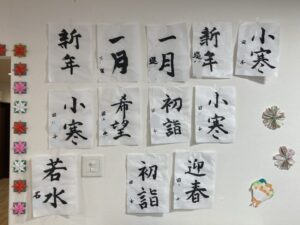 小寒
新年
一月
一月
新年
小寒
初詣
希望
小寒
迎春
初詣
若水